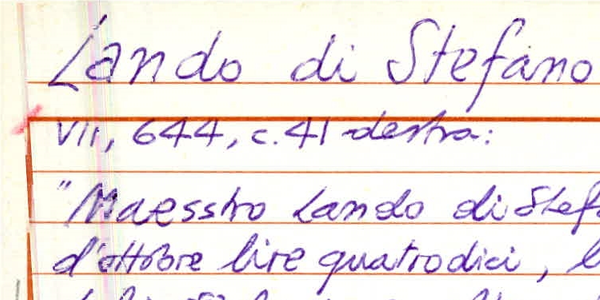 Lando di Stefano
VII, 644, c. 41 destra:
"Maesstro Lando di Stef
d'ottobre lire quatrodici, l